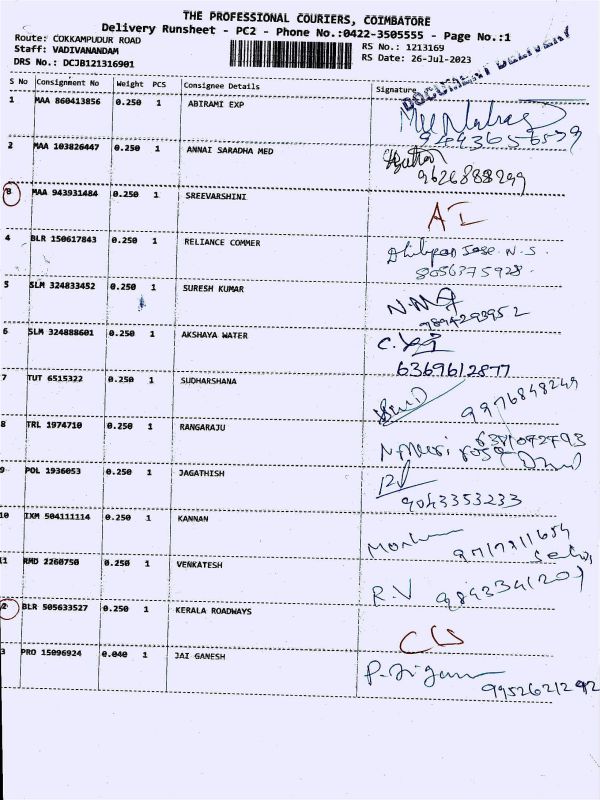 THE PROFESSIONAL COURIERS, COIMBATORE
Delivery Runsheet - PC2 - Phone No.:0422-3505555 - Page No.:1
Route: COKKAMPUDUR ROAD
RS No.: 1213169
Staff: VADIVANANDAM
RS Date: 26-Jul-2023
DRS No.: DCJB121316901
DOCUMENT DELIVERY
S No Consignment No Weight PCS Consignee Details Signature
1 MAA 860413856 0.250 1 ABIRAMI EXP
2 MAA 103826447 0.250 1 ANNAI SARADHA MED
9626888299
3 MAA 943931484 0.250 1 SREEVARSHINI AI
4 BLR 150617843 0.250 1 RELIANCE COMMER Dhilipan Jose. N.S.
8056375928.
5 SLM 324833452 0.250 1 SURESH KUMAR
9894293952
6 SLM 324888601 0.250 1 AKSHAYA WATER
6369612877
7 TUT 6515322 0.250 1 SUDHARSHANA 9976848249
8 TRL 1974710 0.250 1 RANGARAJU
9 POL 1936053 0.250 1 JAGATHISH
9043353233
10 IXM 504111114 0.250 1 KANNAN
11 RMD 2260750 0.250 1 VENKATESH R V 9843341201
2 BLR 505633527 0.250 1 KERALA ROADWAYS
3 PRO 15096924 0.040 1 JAI GANESH
9952621292